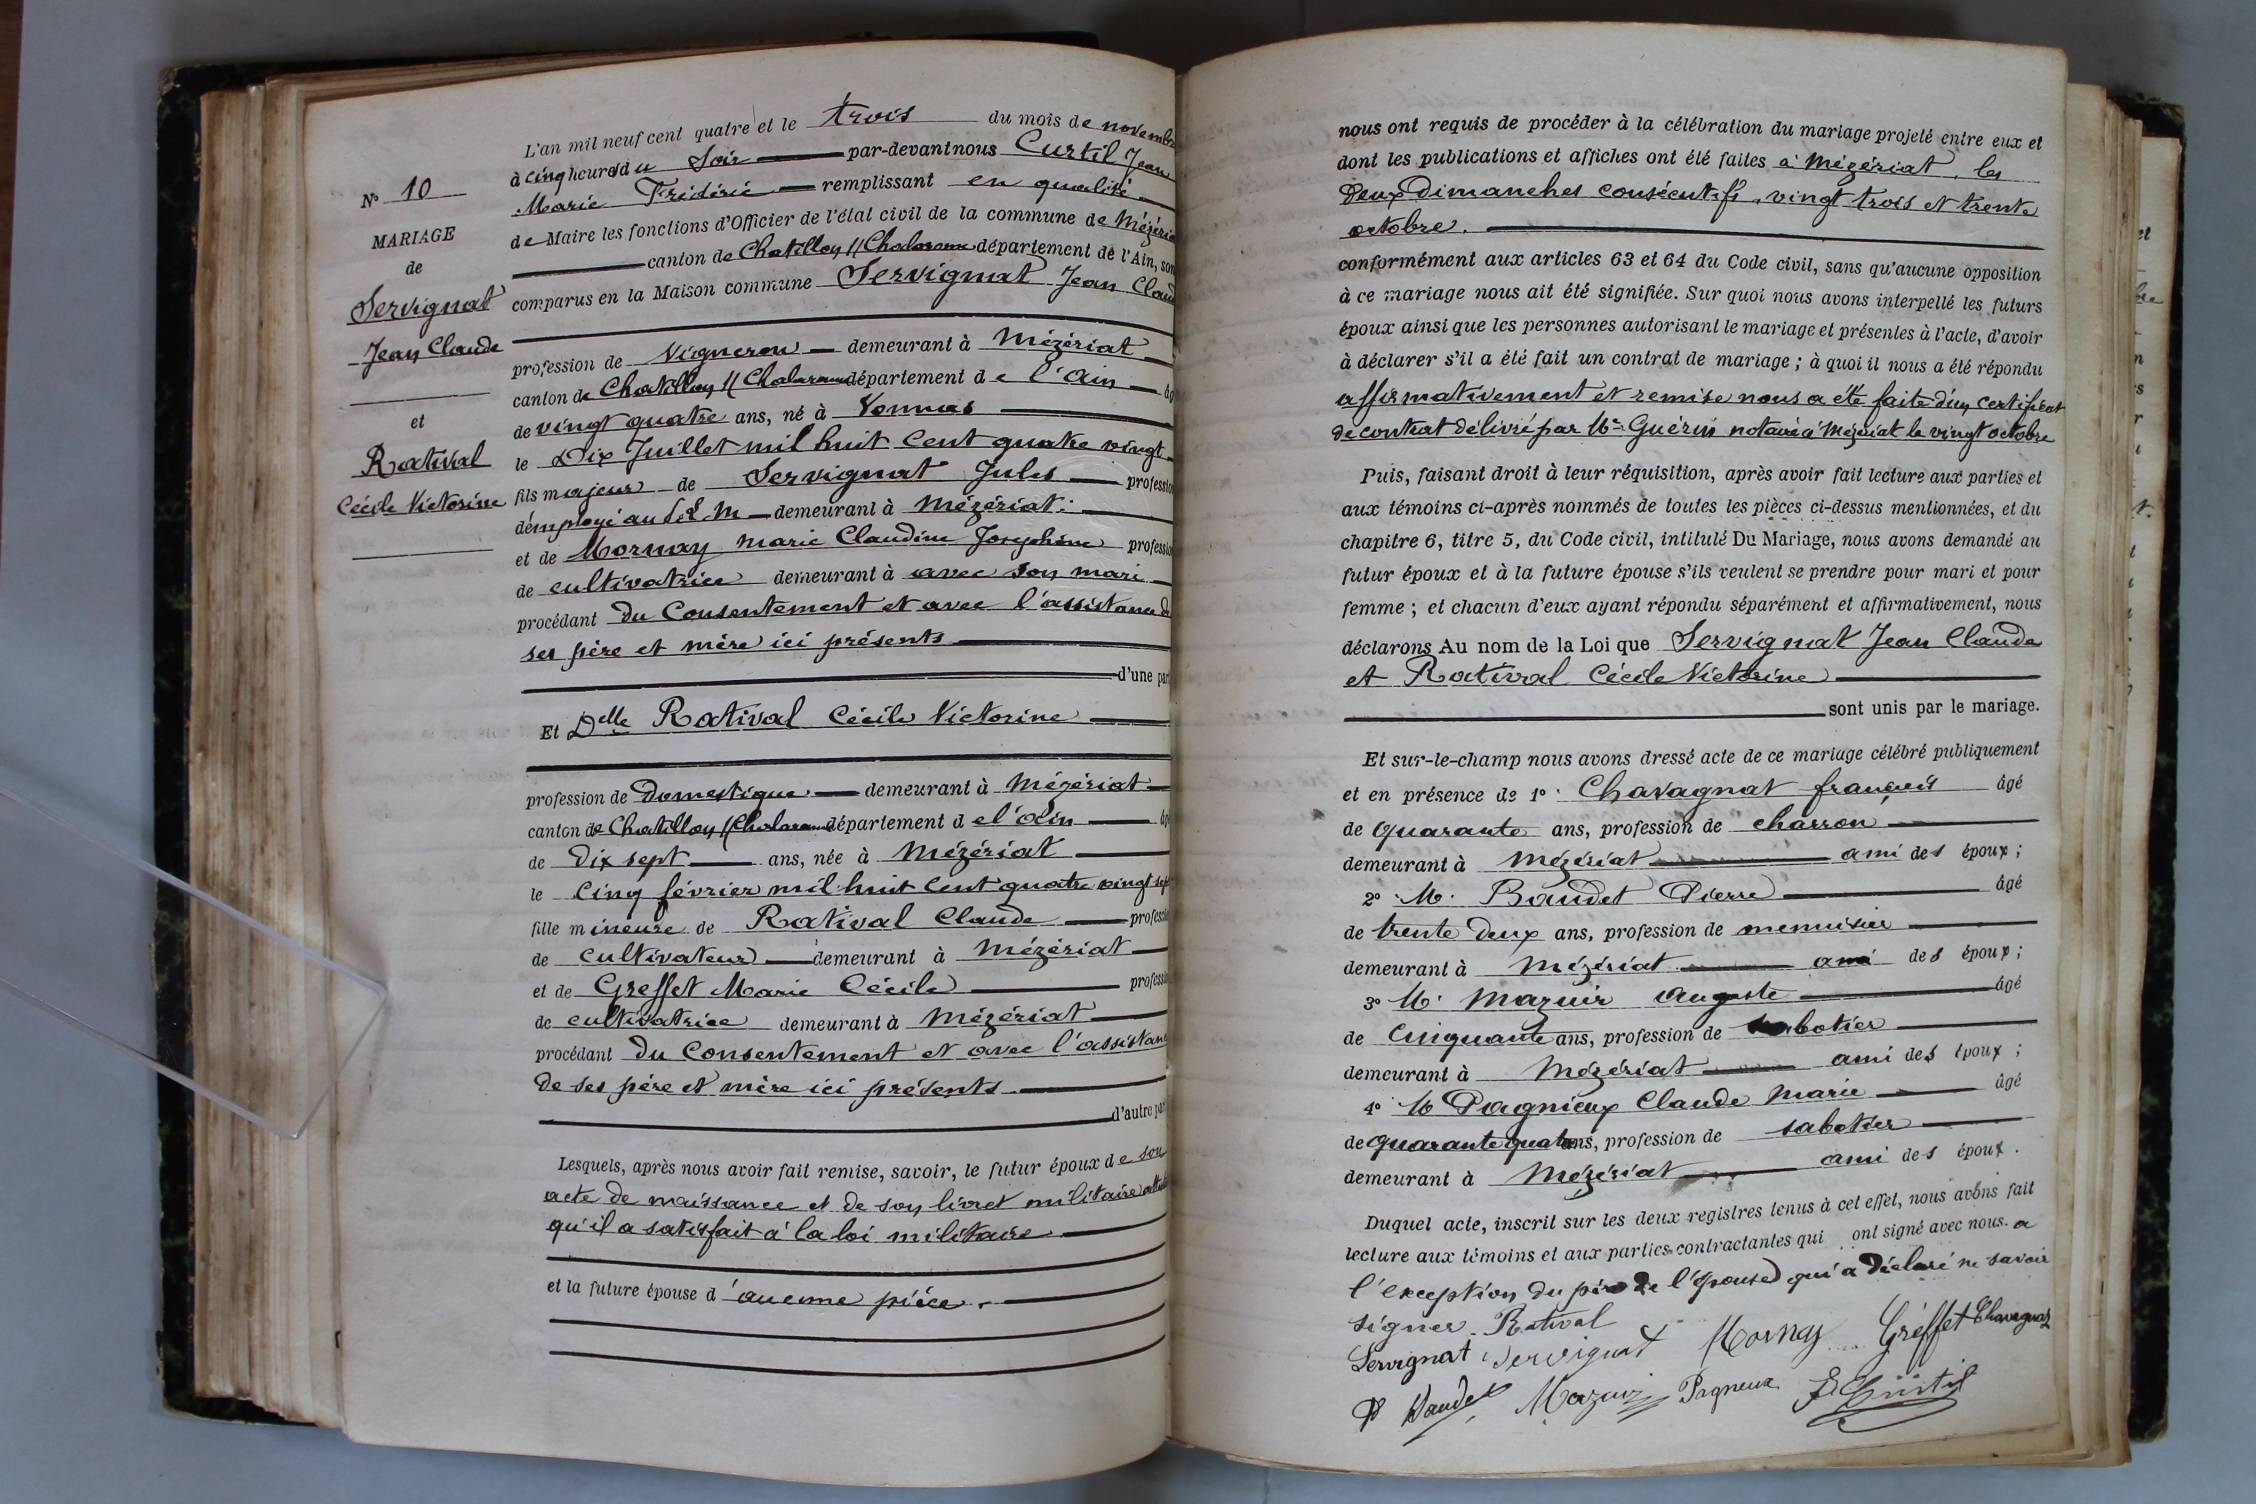 N° 10
MARIAGE
de
Servignat
Jean Claude
et
Rativat
Cécile Victorine
L'an mil neuf cent quatre et le trois du mois de novembre
à cinq heures du Soir par-devant nous Curtil Jean
Marie Frédéric remplissant en qualité
de Maire les fonctions d'Officier de l'état civil de la commune de Mézériat
canton de Chatillon s/ Chalaronne département de l'Ain, sont
comparus en la Maison commune Servignat Jean Claude
profession de Vigneron demeurant à Mézériat
canton de Chatillon s/ Chalaronne département de l'Ain âgé
de vingt quatre ans, né à Vonnas
le Dix Juillet mil huit cent quatre vingt
fils majeur de Servignat Jules profession
d'employé au demeurant à Mézériat
et de Mornay Marie Claudine Joséphine profession
de cultivatrice demeurant à avec son mari
procédant du Consentement et avec l'assistance de
ses père et mère ici présents
d'une part
Et Delle Rativat Cécile Victorine
profession de Domestique demeurant à Mézériat
canton de Chatillon s/ Chalaronne département de l'Ain âgé
de Dix sept ans, née à Mézériat
le cinq février mil huit cent quatre vingt sept
fille mineure de Rativat Claude profession
de cultivateur demeurant à Mézériat
et de Greffet Marie Cécile profession
de cultivatrice demeurant à Mézériat
procédant du Consentement et avec l'assistance
de ses père et mère ici présents
d'autre part
Lesquels, après nous avoir fait remise, savoir, le futur époux de son
acte de naissance et de son livret militaire
qu'il a satisfait à la loi militaire
et la future épouse d'aucune pièce.
nous ont requis de procéder à la célébration du mariage projeté entre eux et
dont les publications et affiches ont été faites à Mézériat, les
Deux dimanches consécutifs, vingt trois et trente
octobre.
conformément aux articles 63 et 64 du Code civil, sans qu'aucune opposition
à ce mariage nous ait été signifiée. Sur quoi nous avons interpellé les futurs
époux ainsi que les personnes autorisant le mariage et présentes à l'acte, d'avoir
à déclarer s'il a été fait un contrat de mariage ; à quoi il nous a été répondu
affirmativement et remise nous a été faite d'un certificat
de contrat délivré par Me Guérin notaire à Mézériat le vingt octobre
Puis, faisant droit à leur réquisition, après avoir fait lecture aux parties et
aux témoins ci-après nommés de toutes les pièces ci-dessus mentionnées, et du
chapitre 6, titre 5, du Code civil, intitulé Du Mariage, nous avons demandé au
futur époux et à la future épouse s'ils veulent se prendre pour mari et pour
femme ; et chacun d'eux ayant répondu séparément et affirmativement, nous
déclarons Au nom de la Loi que Servignat Jean Claude
et Rativat Cécile Victorine
sont unis par le mariage.
Et sur-le-champ nous avons dressé acte de ce mariage célébré publiquement
et en présence de 1° Chavagnat françois âgé
de quarante ans, profession de charron
demeurant à Mézériat ami des époux ;
2° M. Baudet Pierre âgé
de trente deux ans, profession de menuisier
demeurant à Mézériat ami des époux ;
3° M. Mazuir Auguste âgé
de cinquante ans, profession de sabotier
demeurant à Mézériat ami des époux ;
4° M Pagneux Claude Marie âgé
de quarante quatre ans, profession de sabotier
demeurant à Mézériat ami des époux.
Duquel acte, inscrit sur les deux registres tenus à cet effet, nous avons fait
lecture aux témoins et aux parties contractantes qui ont signé avec nous. a
l'exception du père de l'épouse qui a déclaré ne savoir
signer. Rativat
Servignat Servignat Mornay Greffet Chavagnat
P Baudet Mazuir Pagneux F. Curtil